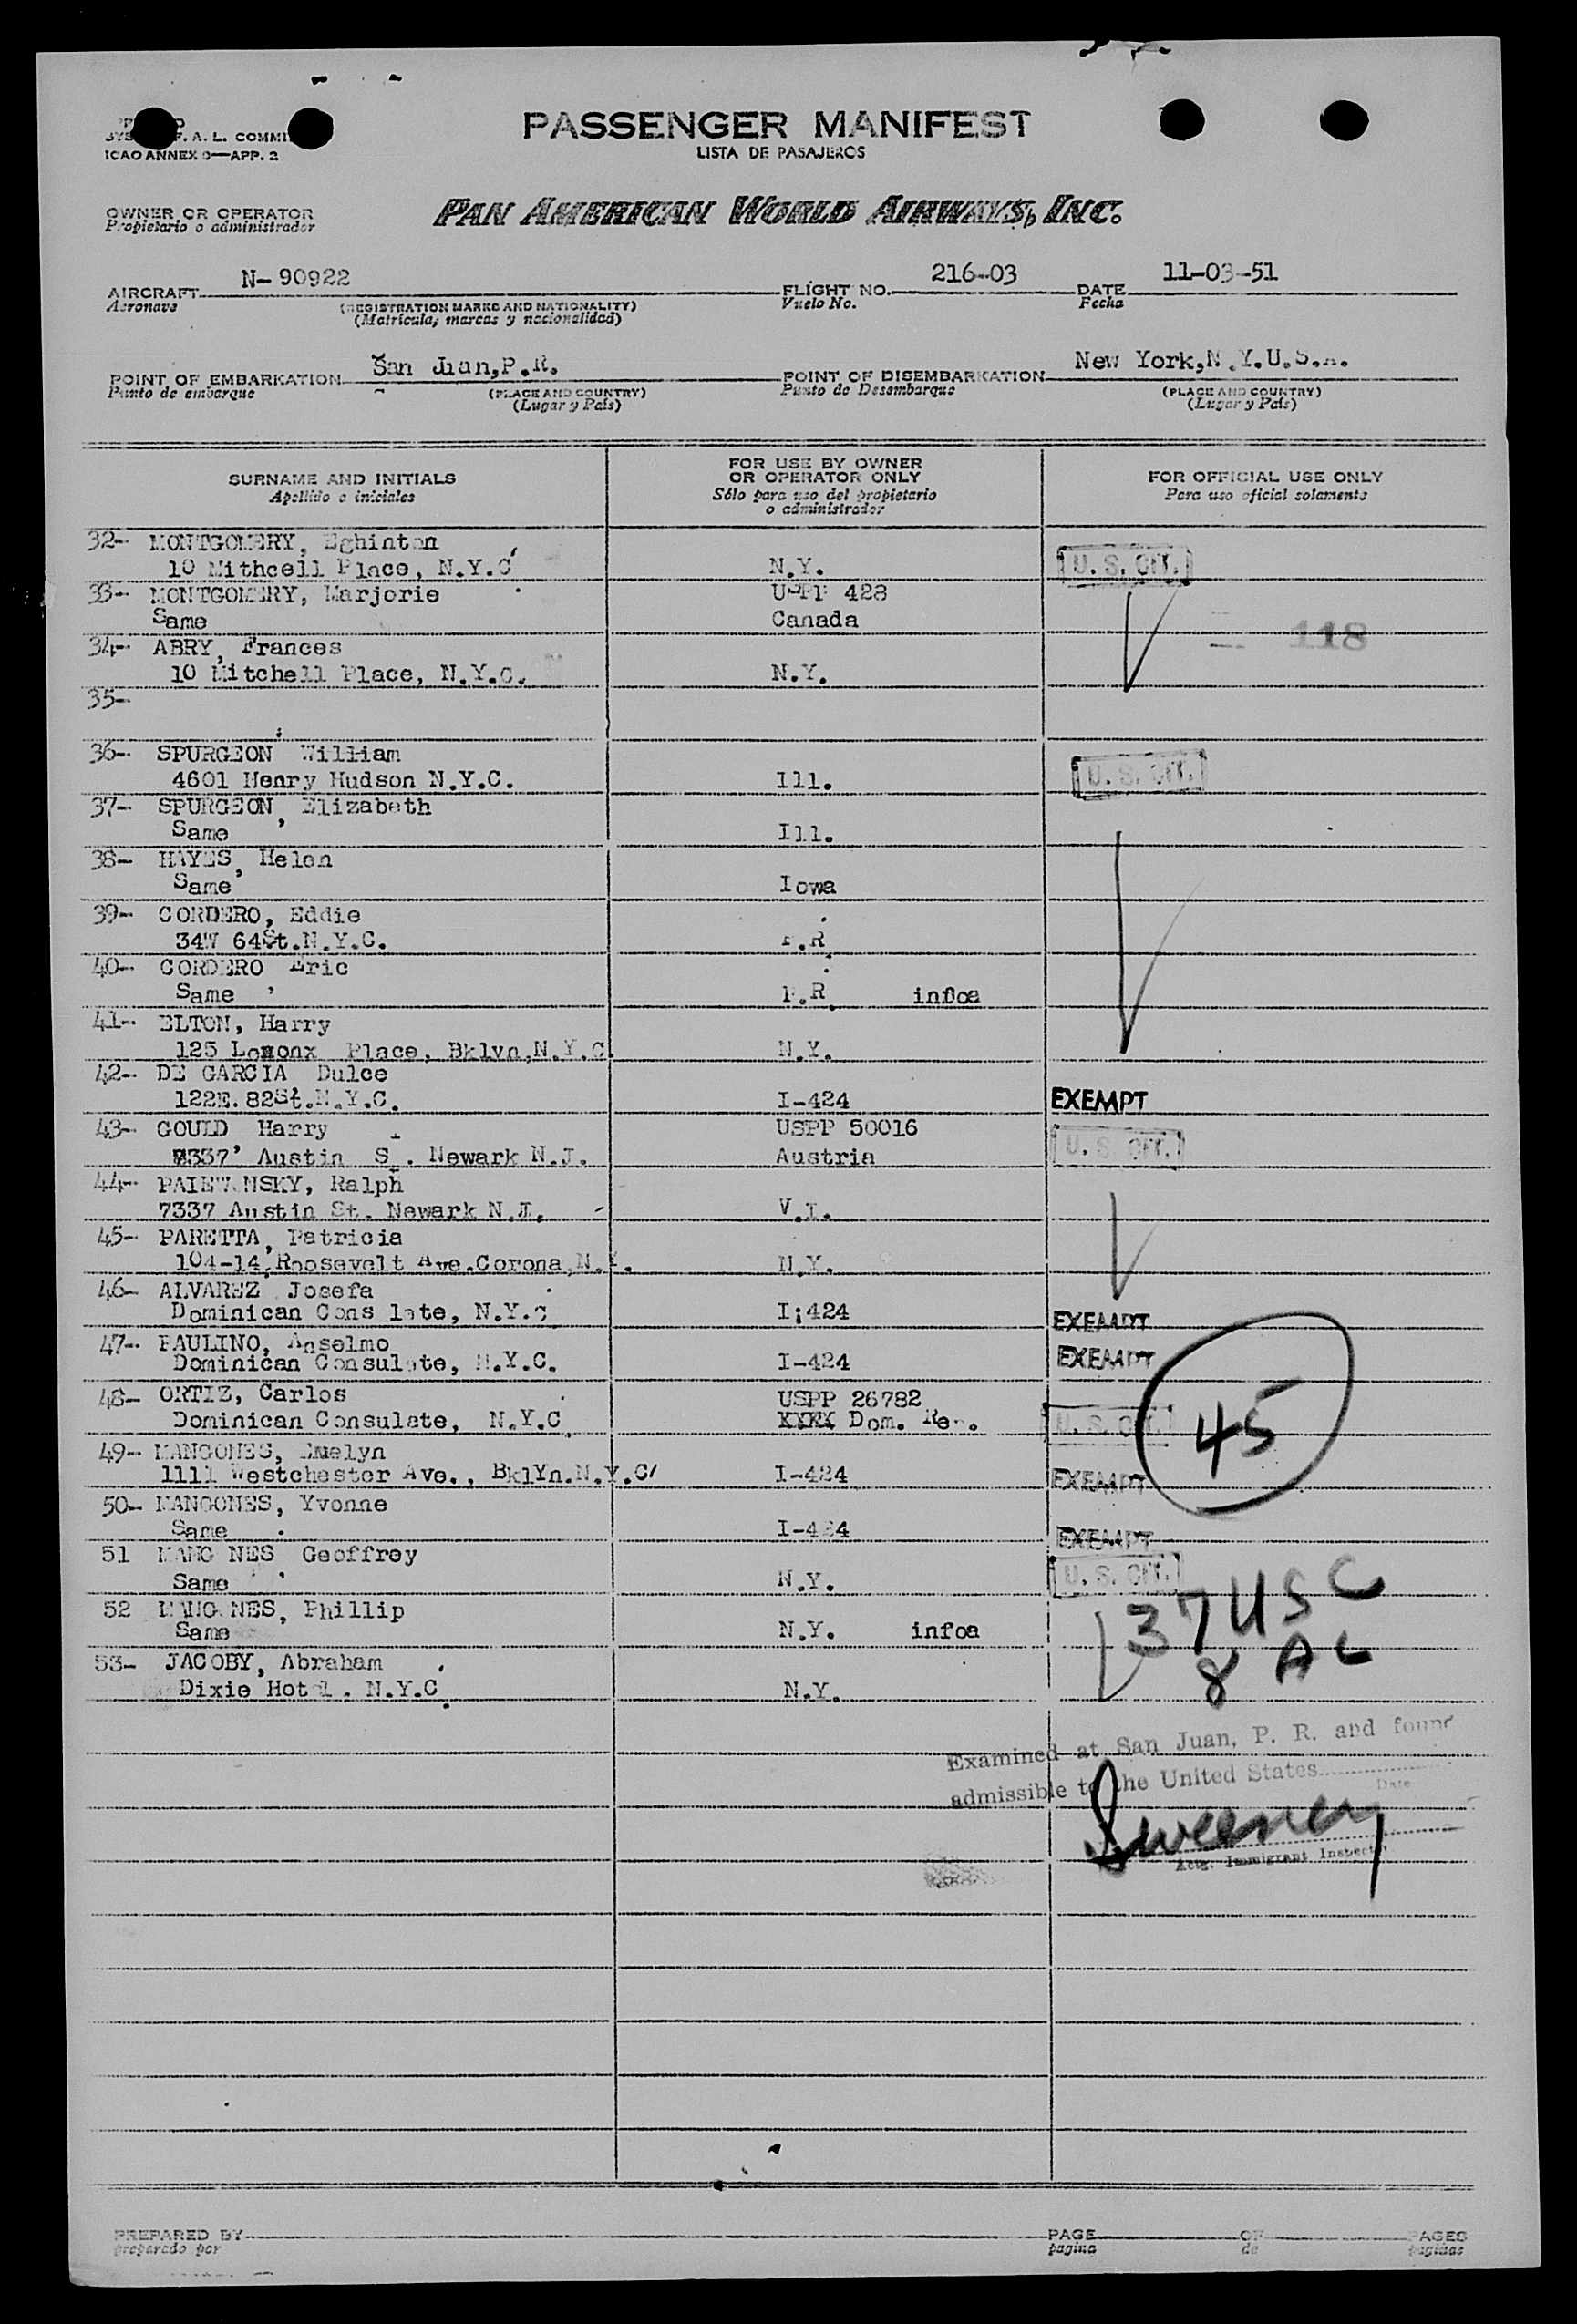 F. A. L. COMMI
ICAO ANNEX 9—APP. 2
PASSENGER MANIFEST
LISTA DE PASAJEROS
OWNER OR OPERATOR
Propietario o administrador
PAN AMERICAN WORLD AIRWAYS, INC.
AIRCRAFT N-90922 FLIGHT NO. 216-03 DATE 11-03-51
Aeronave (REGISTRATION MARKS AND NATIONALITY) Vuelo No. Fecha
(Matrícula, marcas y nacionalidad)
POINT OF EMBARKATION San Juan,P.R. POINT OF DISEMBARKATION New York,N.Y.U.S.A.
Punto de embarque (PLACE AND COUNTRY) Punto de Desembarque (PLACE AND COUNTRY)
(Lugar y País) (Lugar y País)
SURNAME AND INITIALS FOR USE BY OWNER OR OPERATOR ONLY FOR OFFICIAL USE ONLY
Apellido e iniciales Sólo para uso del propietario o administrador Para uso oficial solamente
32- MONTGOMERY, Eghinton
10 Mithcell Place, N.Y.C. N.Y. U. S. CIT.
33- MONTGOMERY, Marjorie USPP 428
Same Canada 118
34- ABRY, Frances
10 Mitchell Place, N.Y.C. N.Y.
35-
36- SPURGEON William
4601 Henry Hudson N.Y.C. Ill. U. S. CIT.
37- SPURGEON, Elizabeth
Same Ill.
38- HAYES, Helen
Same Iowa
39- CORDERO, Eddie
34W 64St.N.Y.C. P.R.
40- CORDERO, Eric
Same P.R. infoa
41- ELTON, Harry
125 Place, Bklyn,N.Y.C. N.Y.
42- DE GARCIA Dulce
122E.82St.N.Y.C. I-424 EXEMPT
43- GOULD, Harry USPP 50016
7337 Austin S . Newark N.J. Austria U. S. CIT.
44- PAIEWONSKY, Ralph
7337 Austin St. Newark N.J. V.I.
45- PARETTA, Patricia
104-14, Roosevelt Ave.Corona,N.Y. N.Y.
46- ALVAREZ Josefa
Dominican Cons late, N.Y.C I;424 EXEMPT
47- PAULINO, Anselmo
Dominican Consulate, N.Y.C. I-424 EXEMPT
48- ORTIZ, Carlos USPP 26782
Dominican Consulate, N.Y.C. XXXX Dom. Rep. U. S. CIT. 45
49- MANGONES, Emelyn
1111 Westchester Ave., BklYn.N.Y.C/ I-424 EXEMPT
50- MANGONES, Yvonne
Same I-424 EXEMPT
51 MANG NES, Geoffrey
Same N.Y. U. S. CIT.
37 USC
52 MANG NES, Phillip
Same N.Y. infoa
8 AL
53- JACOBY, Abraham
Dixie Hotel, N.Y.C. N.Y.
Examined at San Juan, P. R. and found
admissible to the United States
Date
Sweeney
Actg. Immigrant Inspector
PREPARED BY PAGE OF PAGES
preparado por pagina de paginas